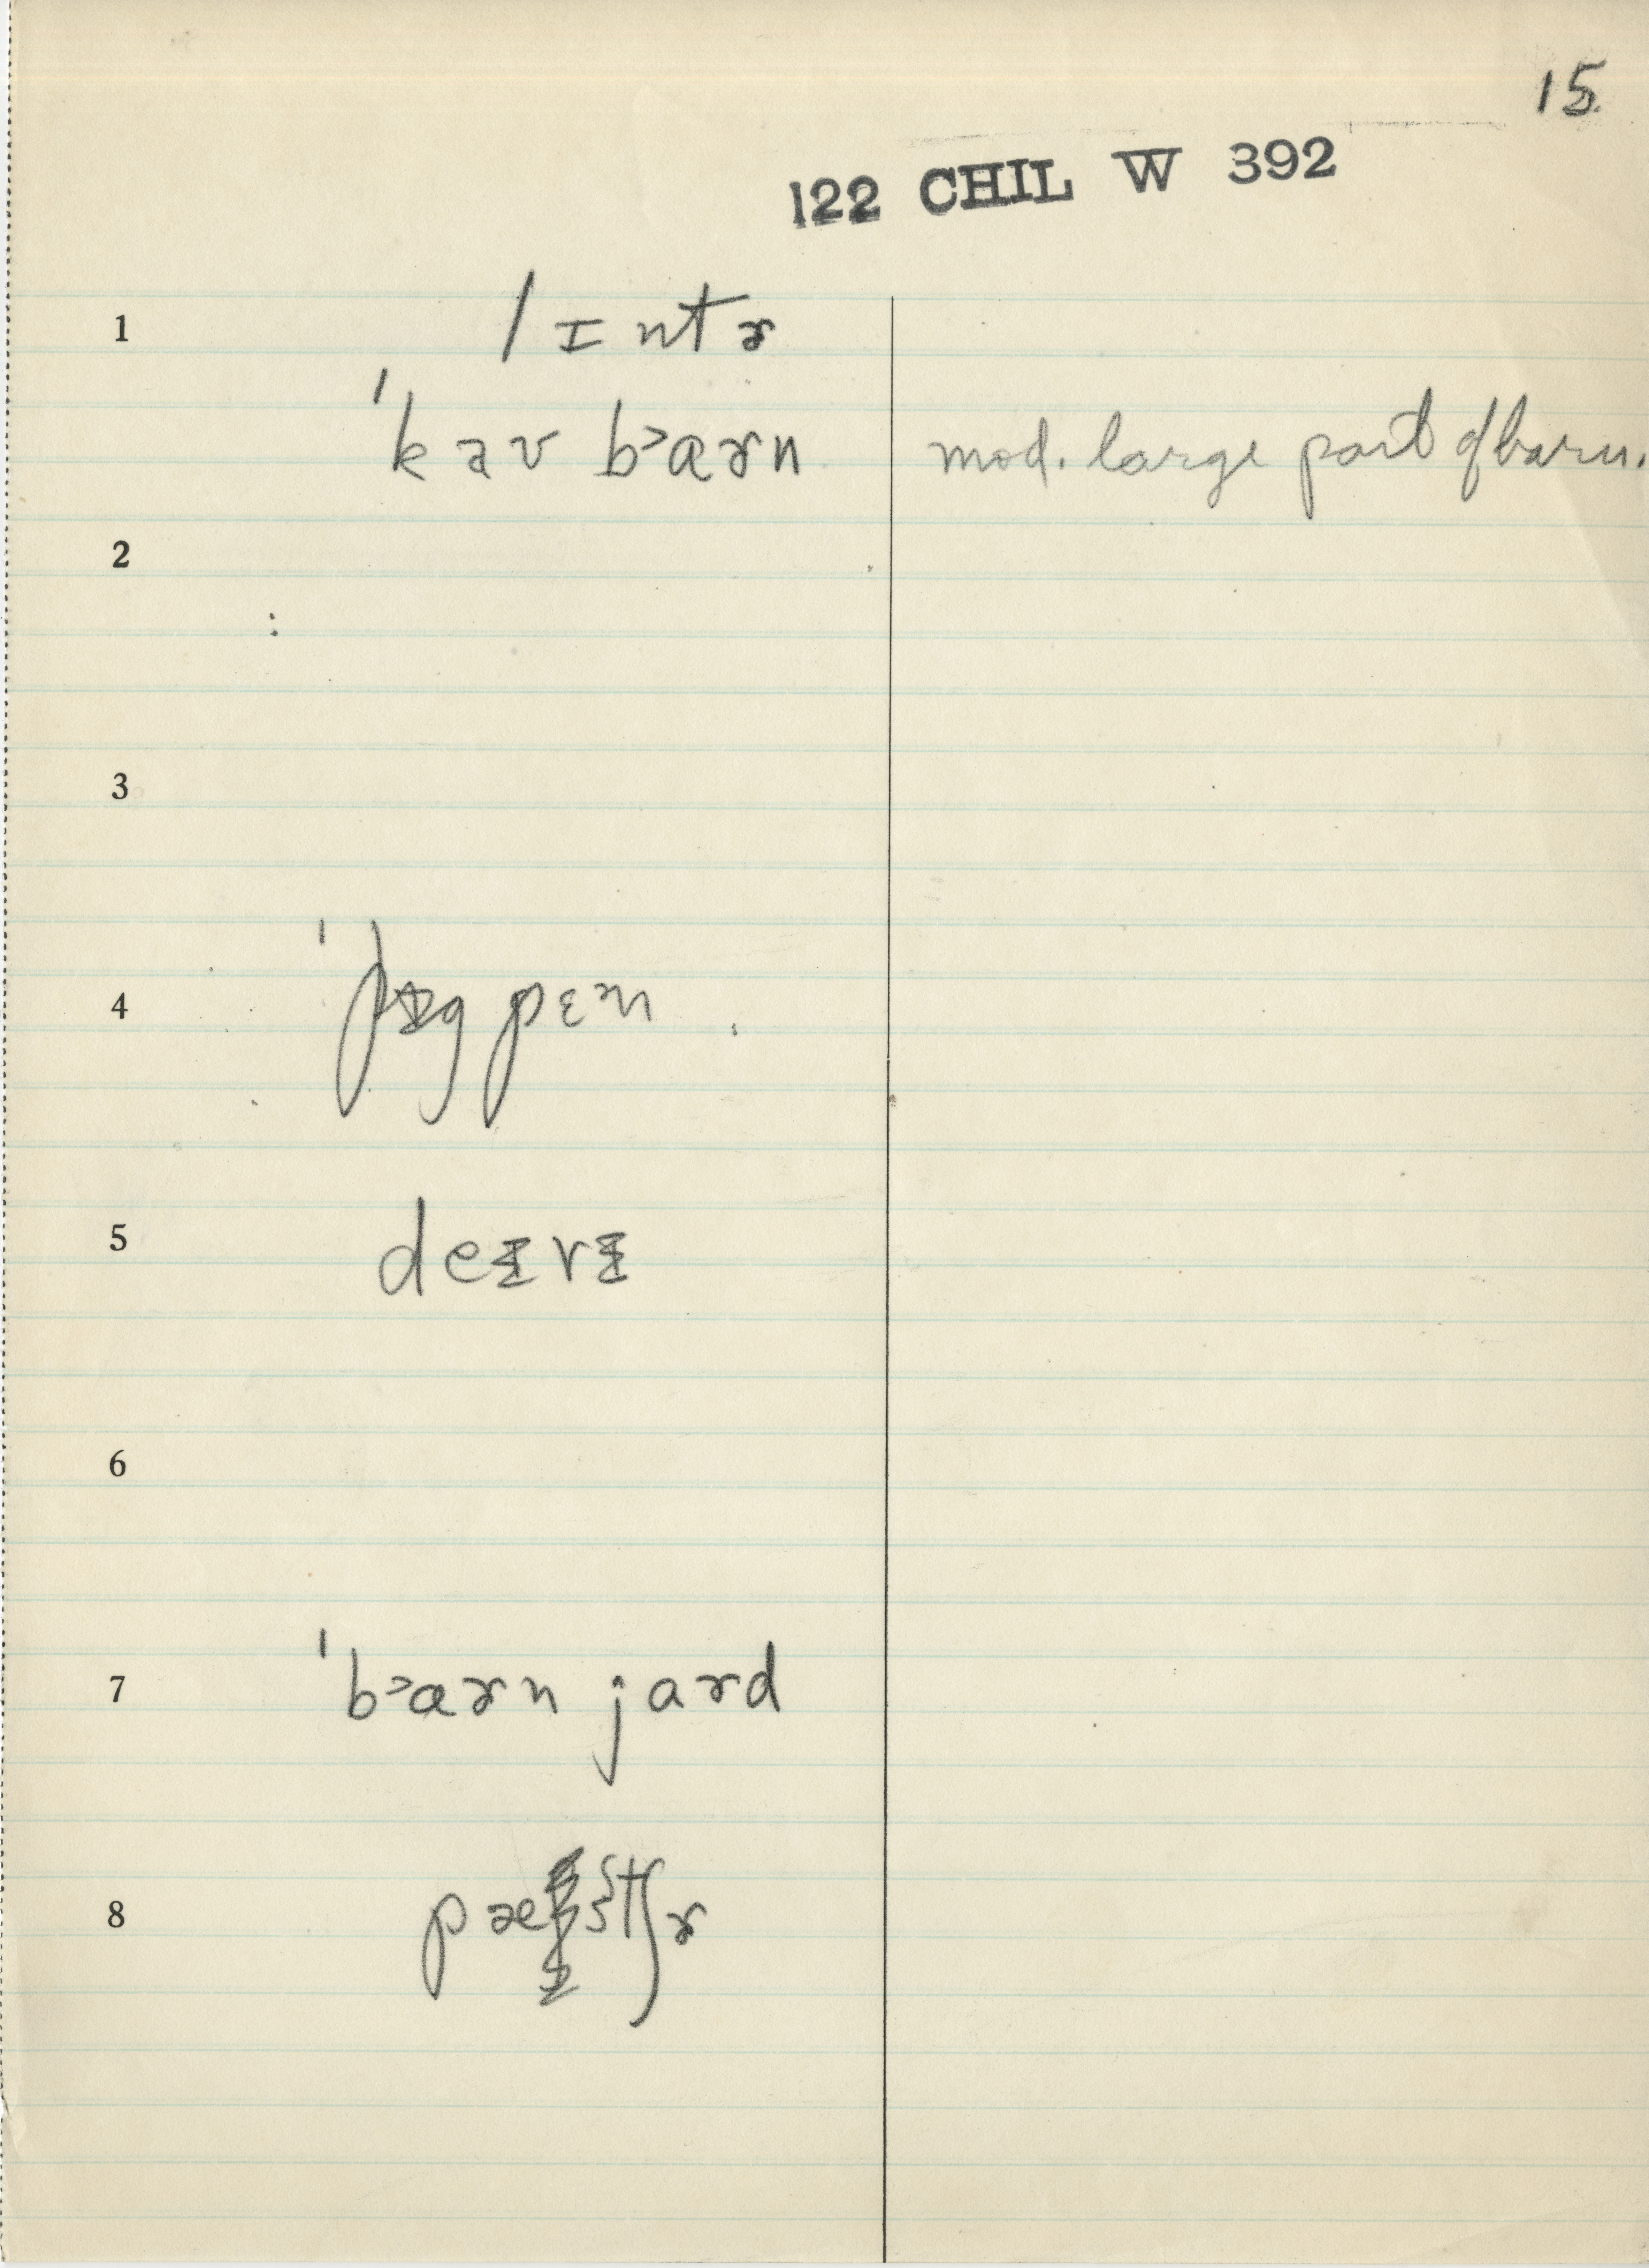 15.
122 CHIL W 392
1 / I nt ɚ
ˈkaʊ b˃aɚn mod. large part of barn.
2
:
3
4 ˈpɪg pɛn
5 deɪrɪ
6
7 ˈb˃aɚn jaɚd
8 pæstʃɚ